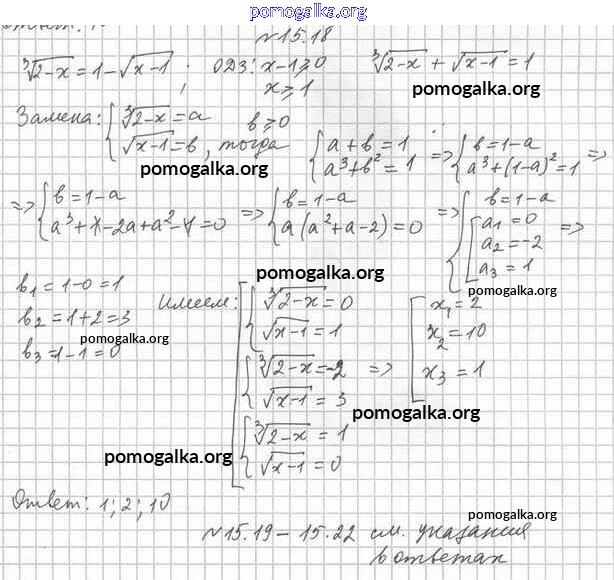 pomogalka.org
Ответ: 1
N 15.18
∛(2-x) = 1 - √(x-1) ; ОДЗ: x-1 ⩾ 0 ∛(2-x) + √(x-1) = 1
x ⩾ 1
pomogalka.org
Замена: { ∛(2-x) = a b ⩾ 0
√(x-1) = b, тогда { a + b = 1 a³ + b² = 1 => { b = 1-a a³ + (1-a)² = 1 =>
pomogalka.org pomogalka.org
=> { b = 1-a a³ + 1 - 2a + a² - 1 = 0 => { b = 1-a a(a² + a - 2) = 0 => { b = 1-a [ a₁ = 0 a₂ = -2 a₃ = 1 =>
pomogalka.org
pomogalka.org
b₁ = 1-0 = 1
b₂ = 1+2 = 3
pomogalka.org
b₃ = 1-1 = 0
Имеем: [ { ∛(2-x) = 0 √(x-1) = 1
{ ∛(2-x) = -2 √(x-1) = 3
{ ∛(2-x) = 1 √(x-1) = 0
=> [ x₁ = 2 x₂ = 10 x₃ = 1
pomogalka.org
pomogalka.org
Ответ: 1; 2; 10
pomogalka.org
N 15.19 – 15.22 см. указания
в ответах